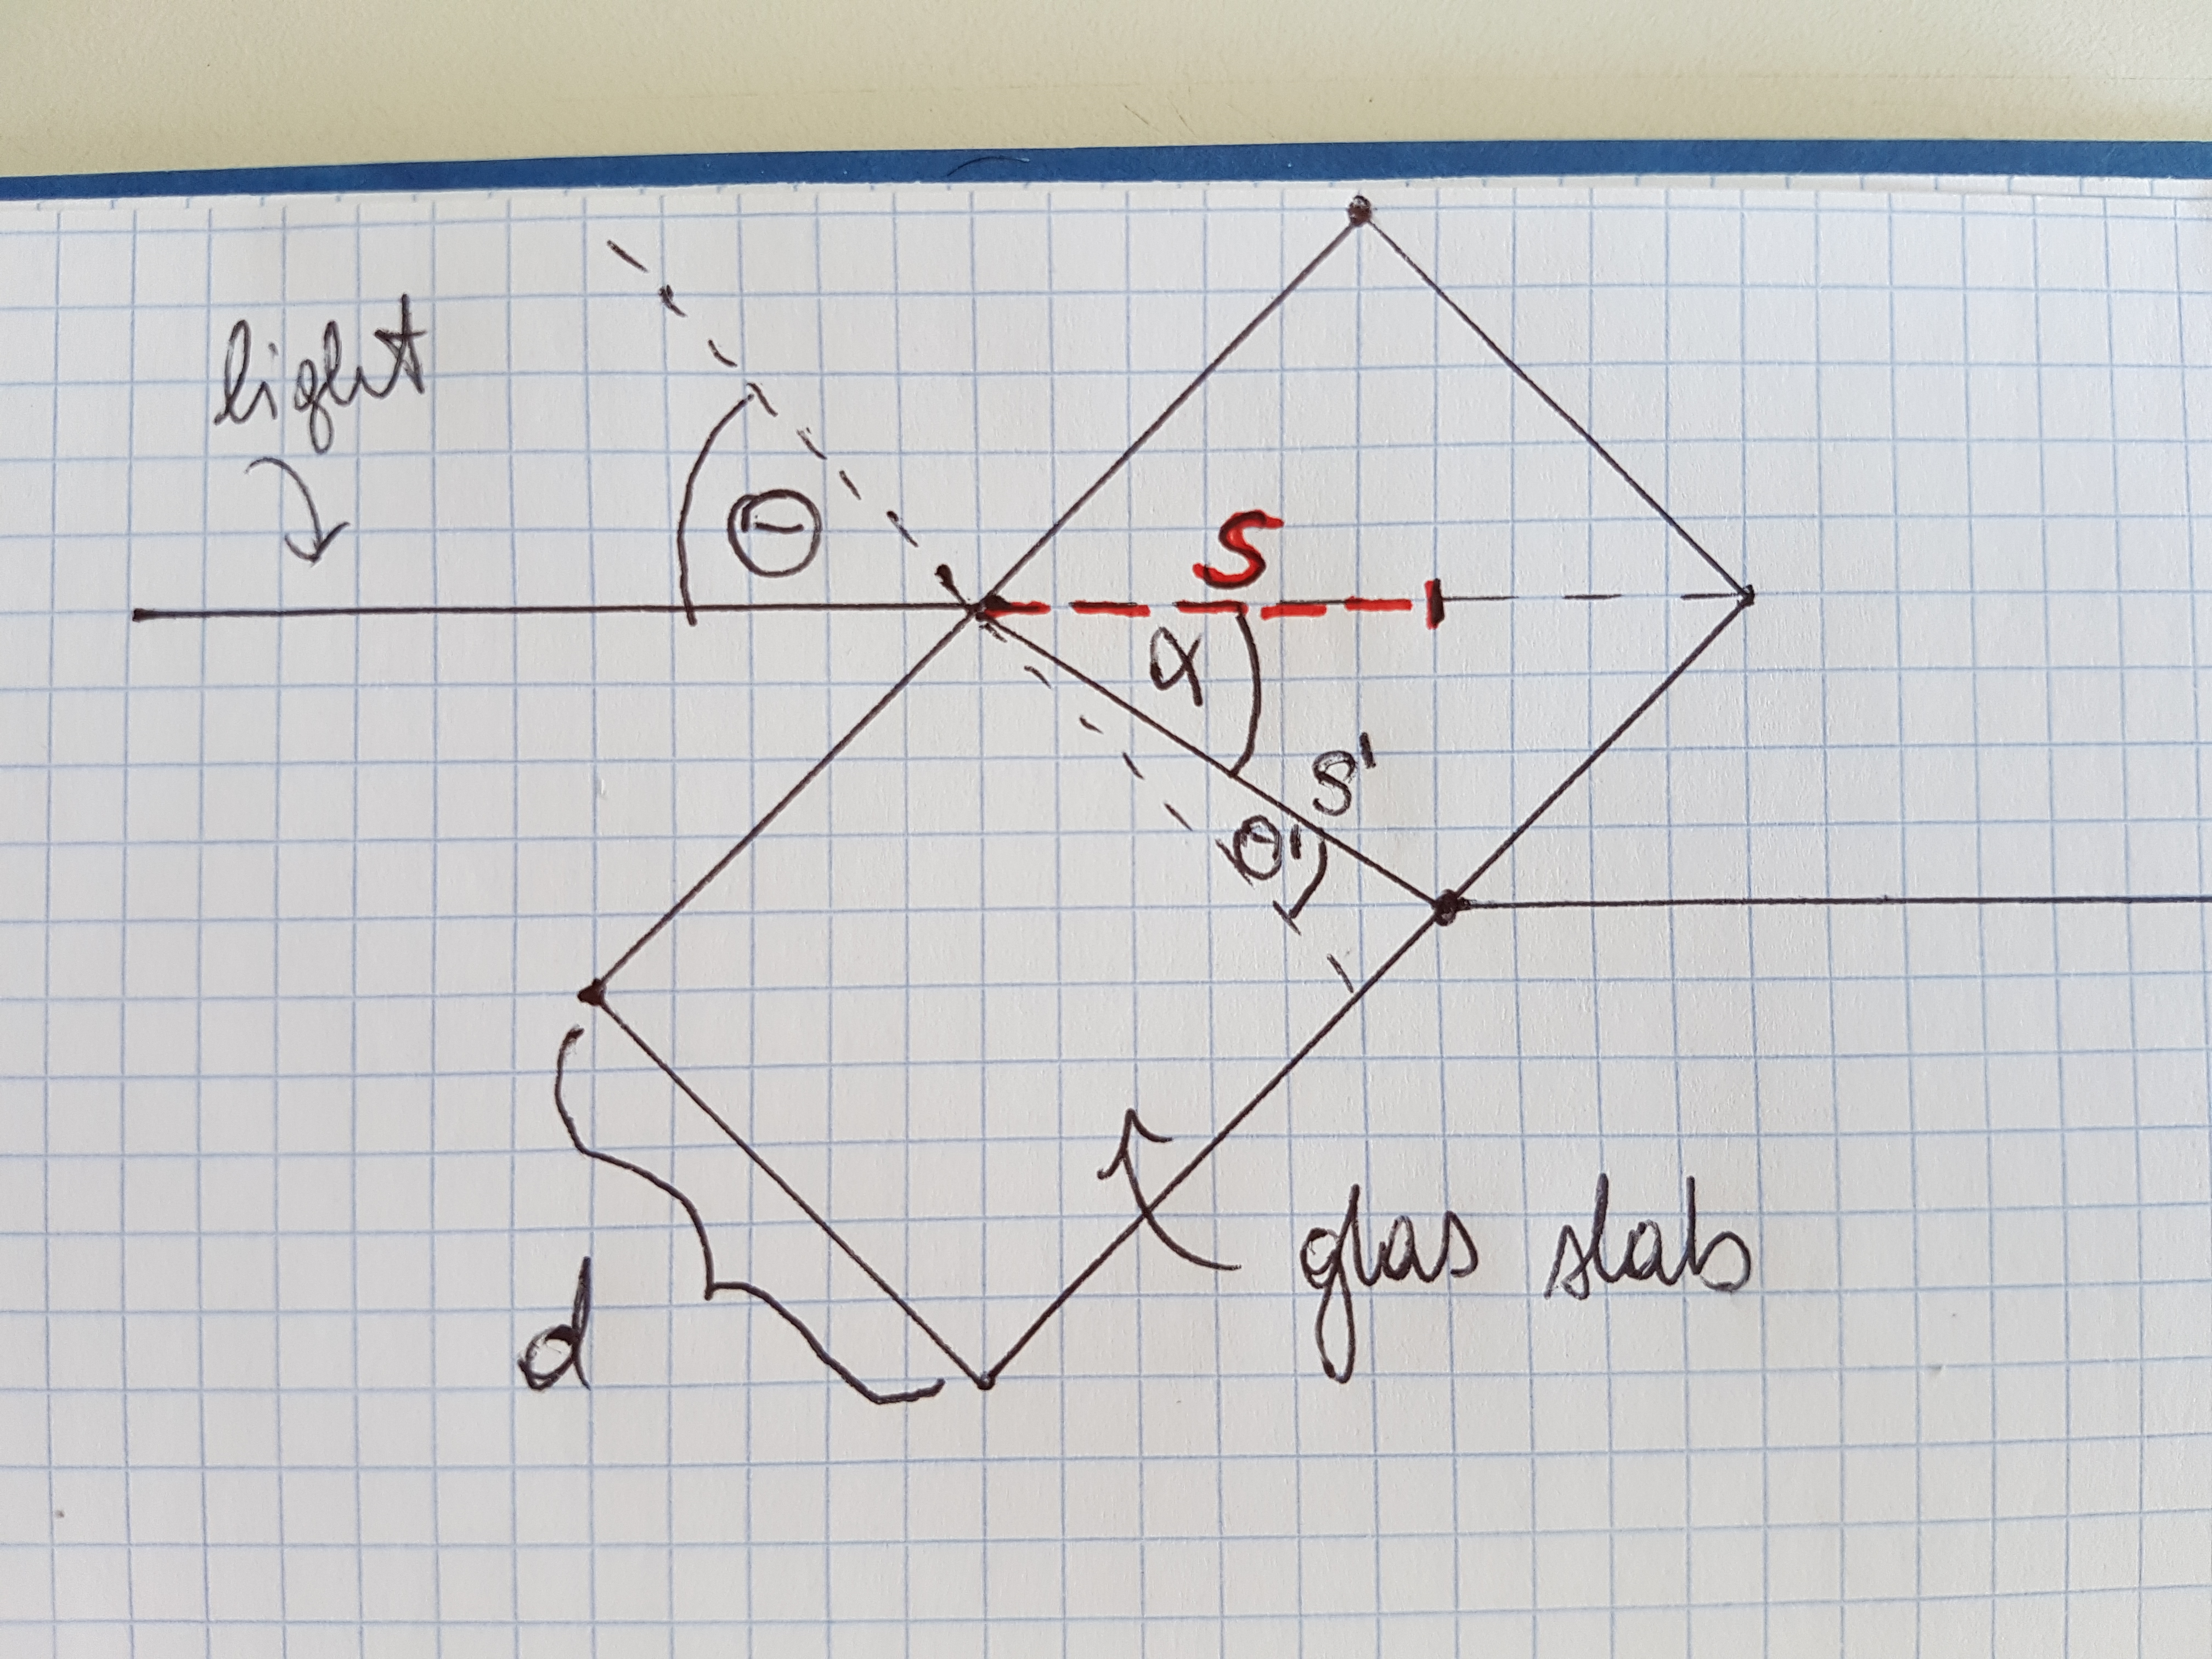 light
Θ
S
α
S'
Θ'
d
glas slab